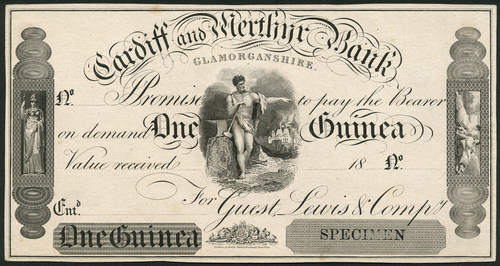 Cardiff and Merthyr Bank
GLAMORGANSHIRE.
No. I Promise to pay the Bearer
on demand One Guinea
Value received 18 No.
For Guest, Lewis & Compy
Entd.
One Guinea SPECIMEN